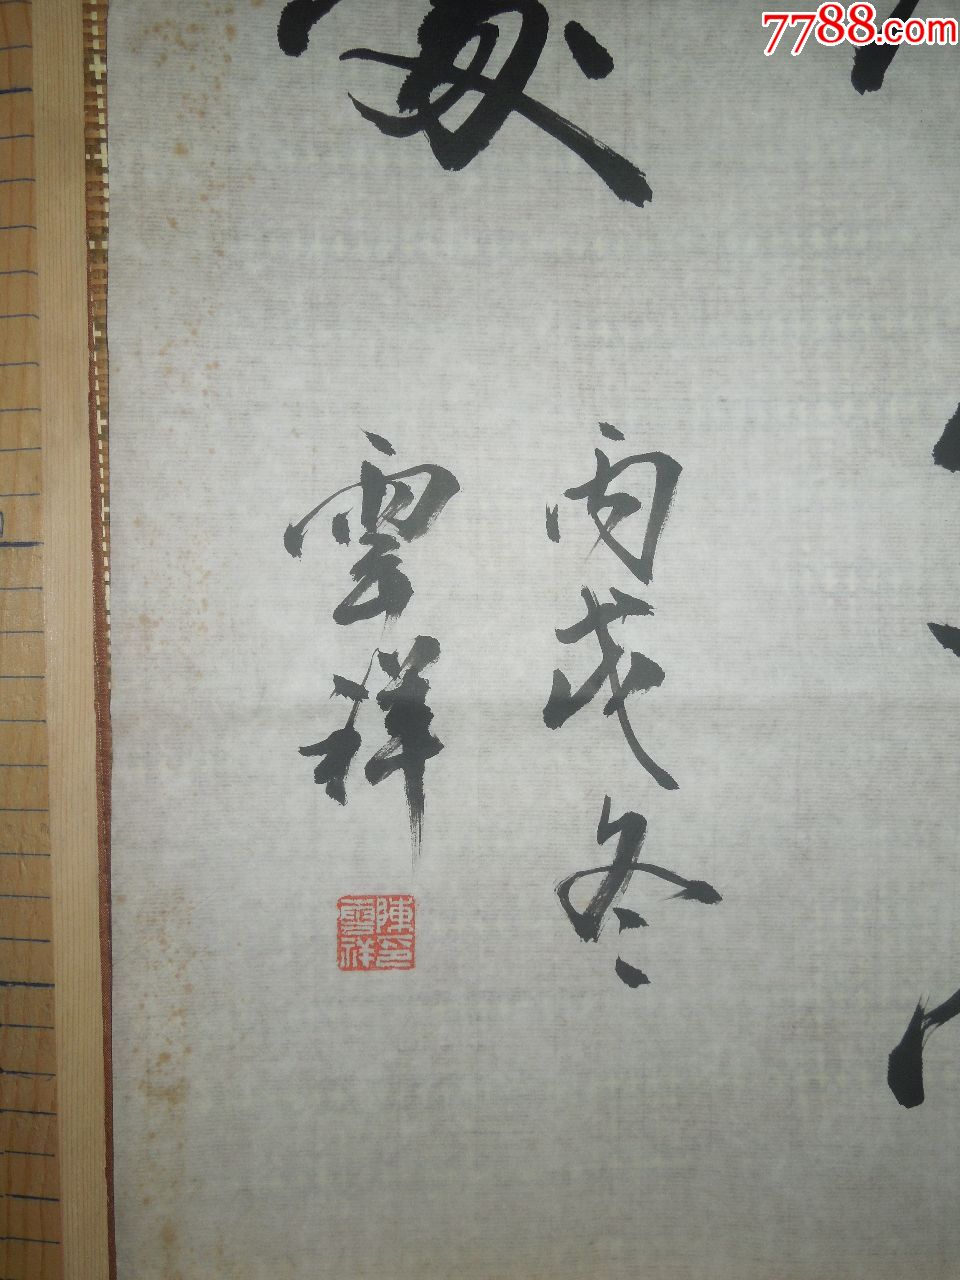 7788.com
丙戌冬
雲祥
陳印
雲祥